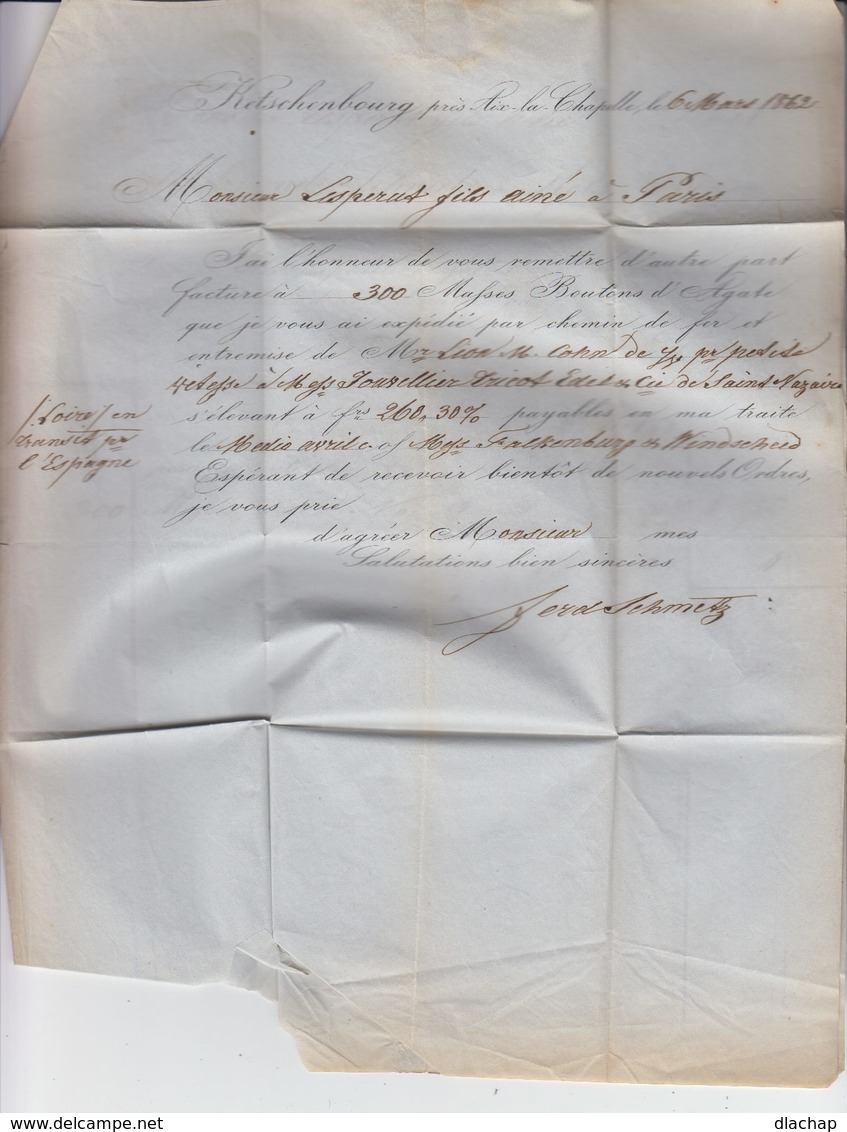 Ketschenbourg près Aix-la-Chapelle, le 6 Mars 1862
Monsieur Lesperut fils ainé à Paris
J'ai l'honneur de vous remettre d'autre part
facture à 300 Masses Boutons d'Agate
que je vous ai expédié par chemin de fer et
entremise de Mr Lion M. Cohn de pr petite
vitesse à Mess Jouvellier Tricot Edel & Cie de Saint Nazaire
/Loire/ en
transit pr
l'Espagne
s'élevant à frs 260, 30% payables en ma traite
le Medio avril c. o/ Mess Falkenburg & Windscheid
Espérant de recevoir bientôt de nouvels Ordres,
je vous prie
d'agréer Monsieur mes
Salutations bien sincères
Ferd Schmetz
delcampe.net
dlachap